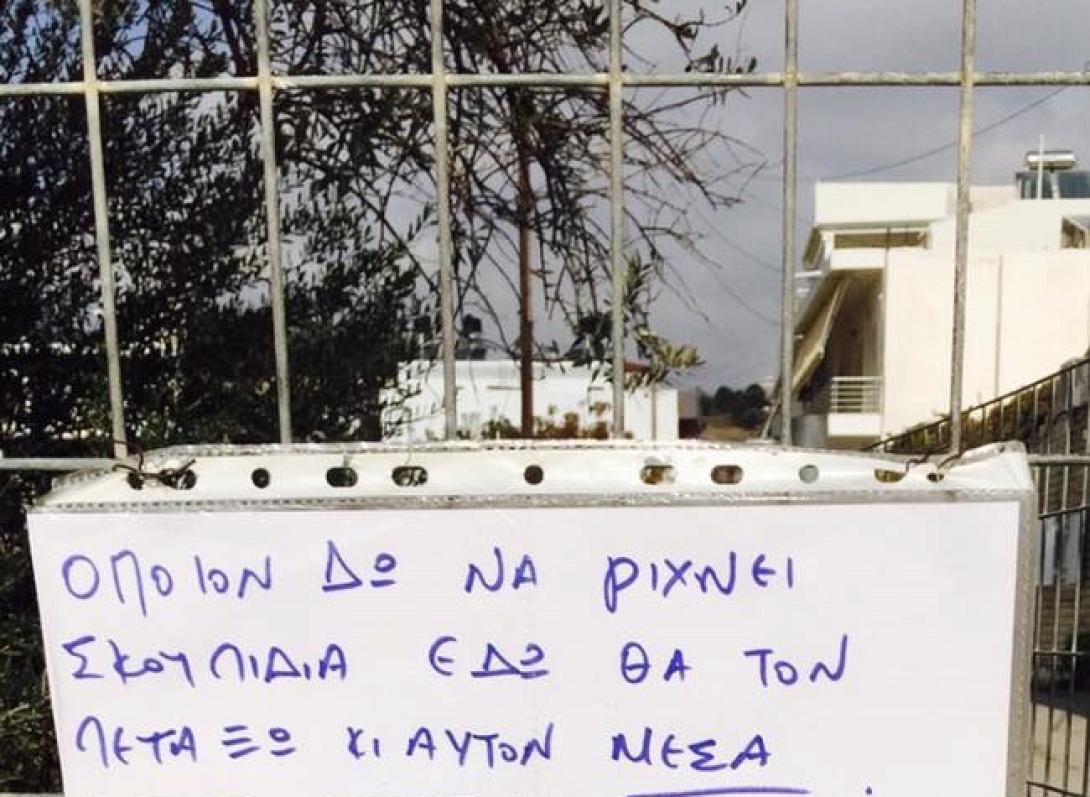 ΟΠΟΙΟΝ ΔΩ ΝΑ ΡΙΧΝΕΙ
ΣΚΟΥΠΙΔΙΑ ΕΔΩ ΘΑ ΤΟΝ
ΠΕΤΑΞΩ ΚΙ ΑΥΤΟΝ ΜΕΣΑ